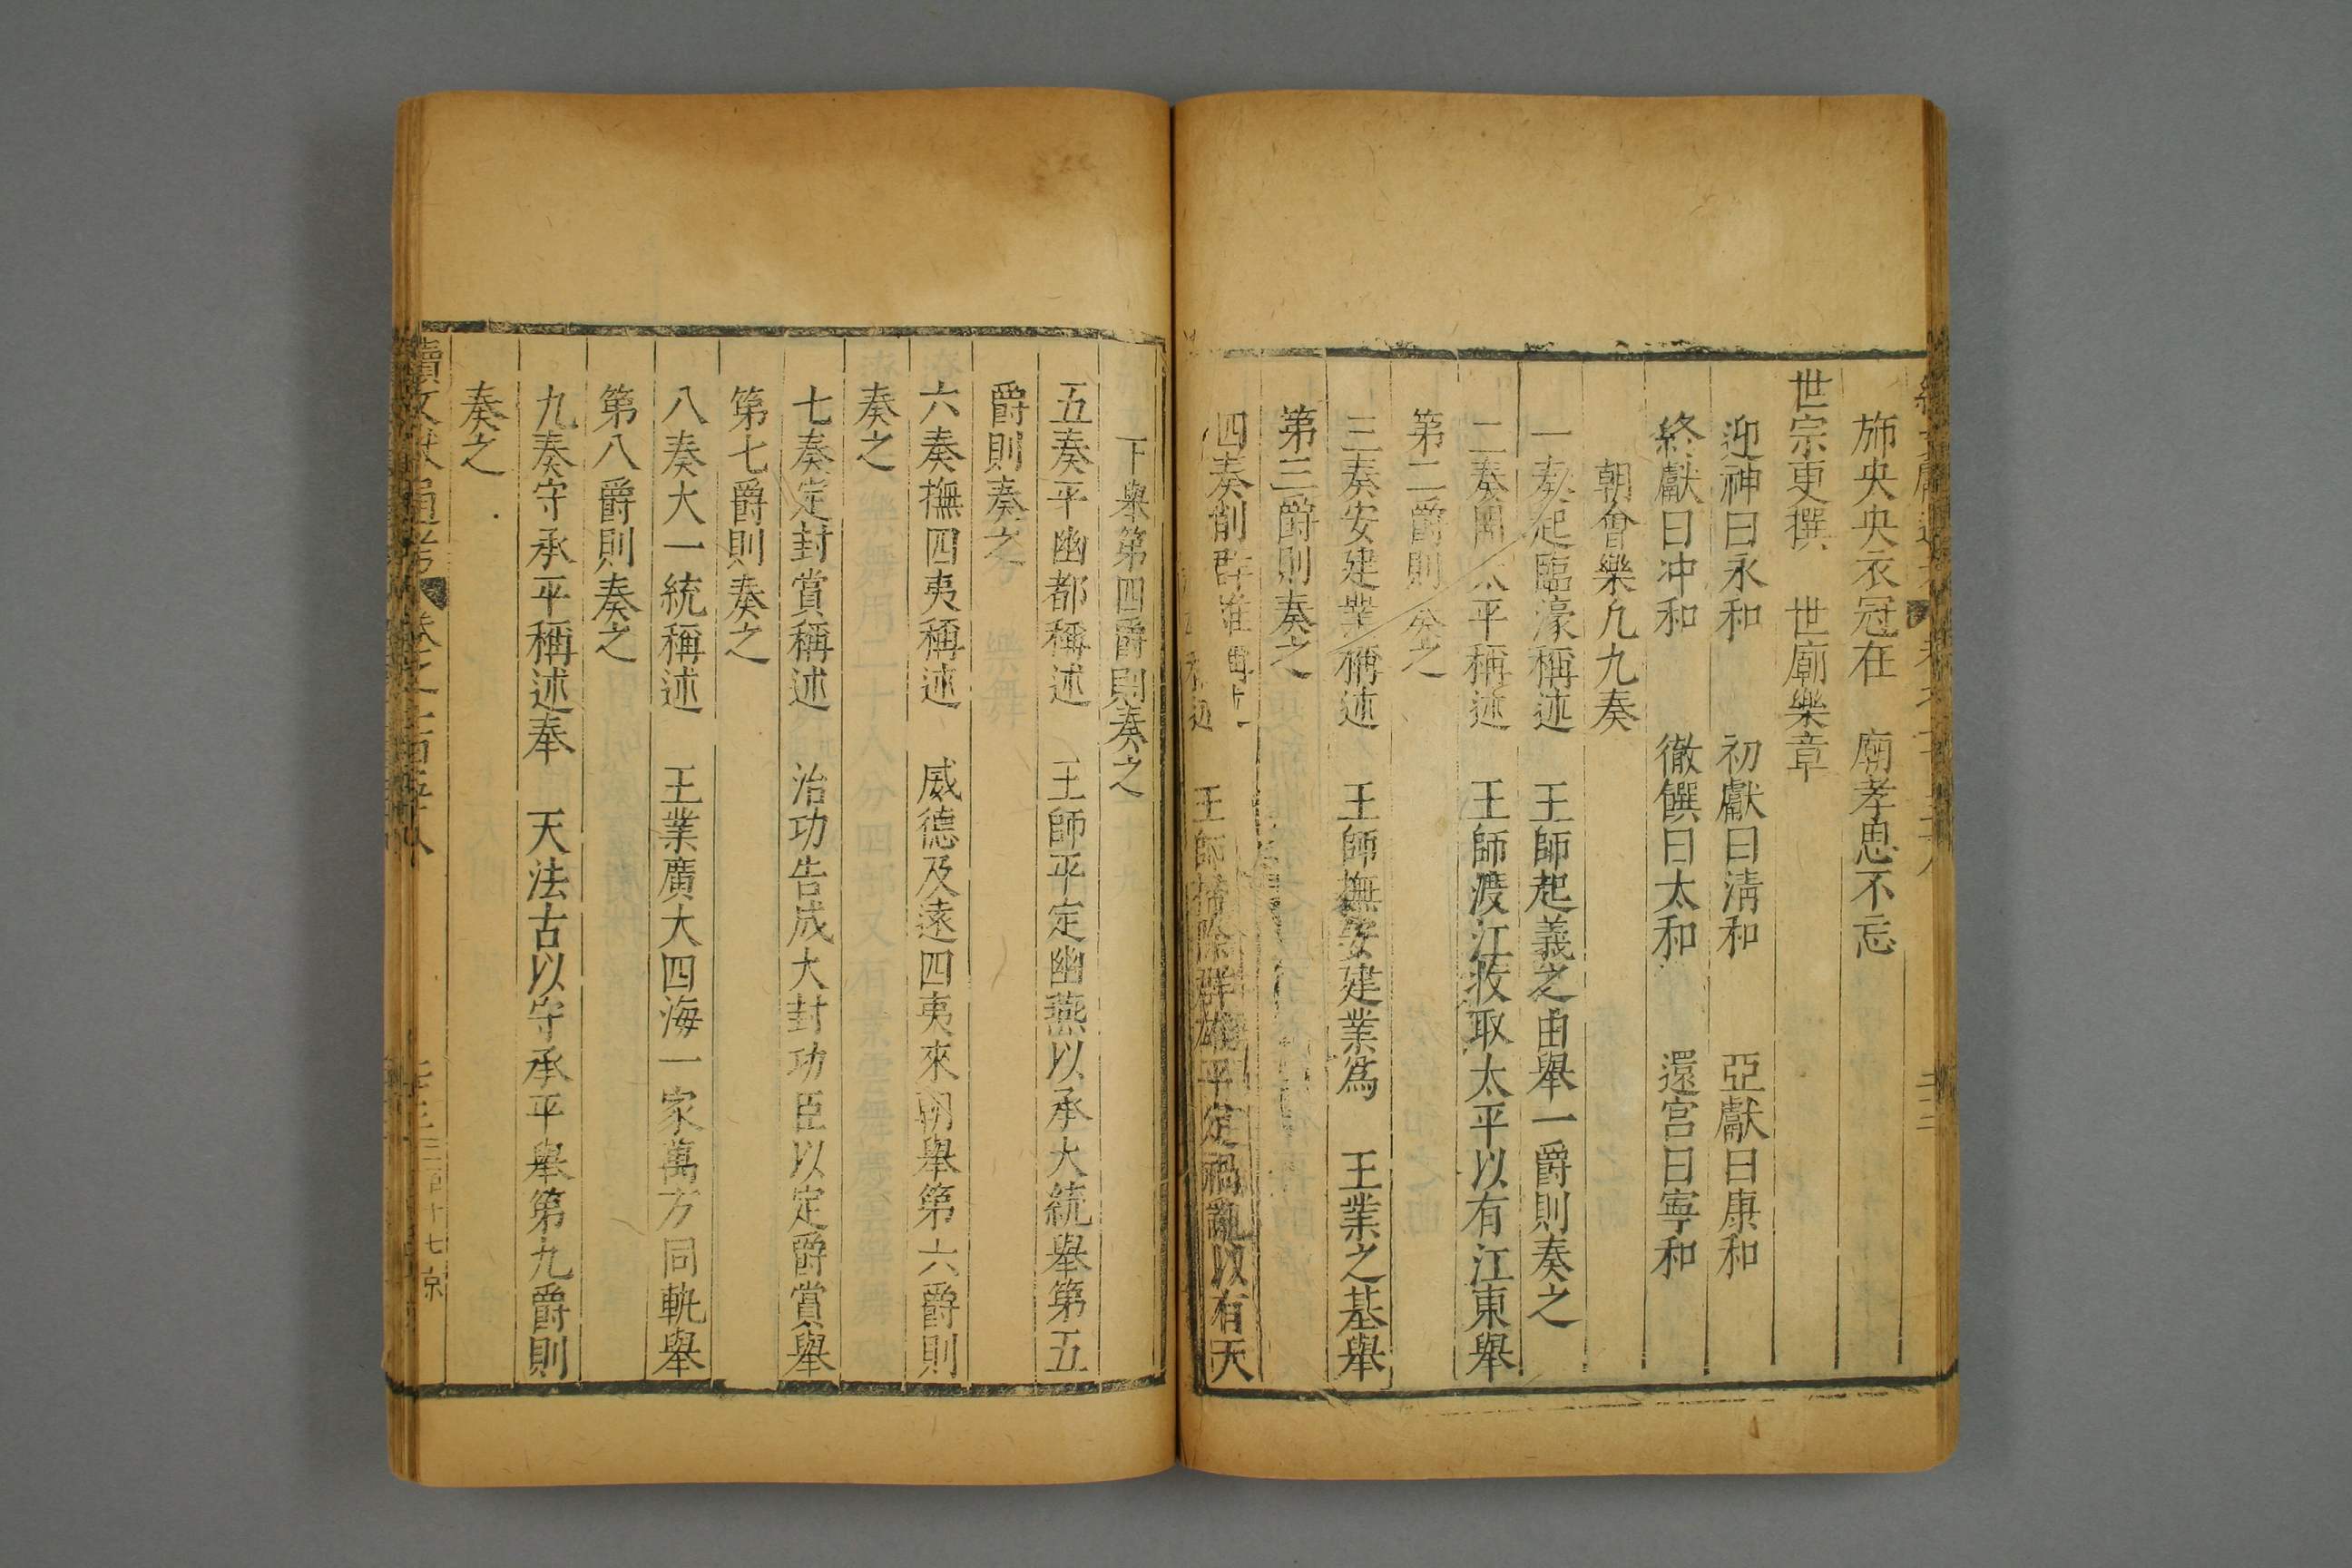 旆央央衣冠在　廟孝思不忘
世宗更撰　世廟樂章
迎神曰永和　初獻曰淸和　亞獻曰康和
終獻曰冲和　徹饌曰太和　還宫曰寧和
朝會樂凡九奏
一奏起臨濠稱述　王師起義之由舉一爵則奏之
二奏 太平稱述　王師渡江拔取太平以有江東舉
第二爵則奏之
三奏安建業稱述　王師撫安建業爲　王業之基舉
第三爵則奏之
四奏削群雄 　王師掃除群雄平定禍亂以有天
下舉第四爵則奏之
五奏平幽都稱述　王師平定幽燕以承大統舉第五
爵則奏之
六奏撫四夷稱述　威德及遠四夷來朝舉第六爵則
奏之
七奏定封賞稱述　治功告成大封功臣以定爵賞舉
第七爵則奏之
八奏大一統稱述　王業廣大四海一家萬方同軌舉
第八爵則奏之
九奏守承平稱述奉　天法古以守承平舉第九爵則
奏之
續文獻通考 卷之一百